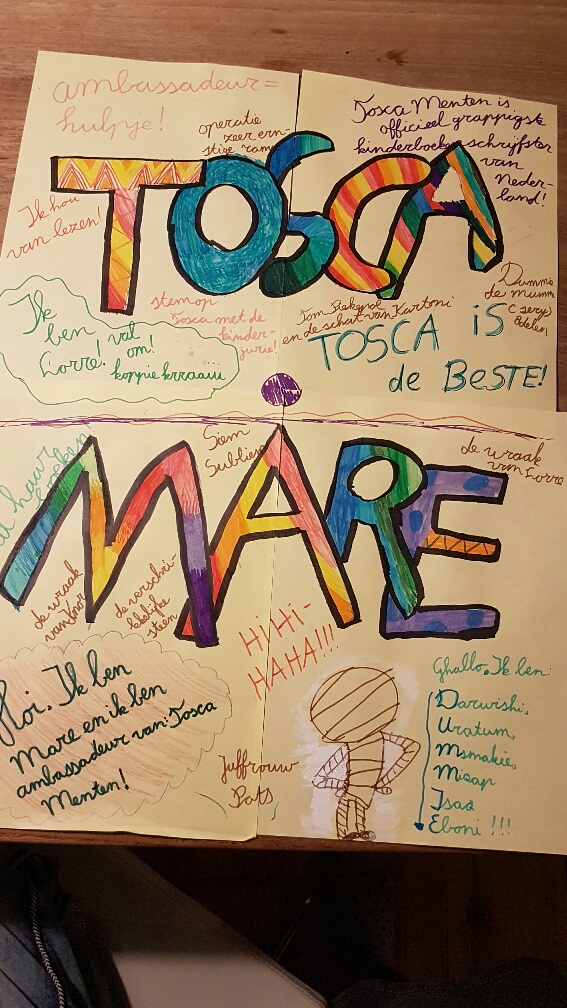 ambassadeur =
hulpje!
operatie
zeer ern-
stige ramp
Tosca Menten is
officieel grappigste
kinderboekenschrijfster
van
Neder-
land!
TOSCA
Ik hou
van lezen!
Ik
ben
Lorre! vat
om!
koppie krraauw
stem op
Tosca met de
kinder-
jurie!
Tom
en de schat van Kartoni
Dummie
de mummie
(serye)
TOSCA iS
de BESTE!
haar
boeken!
Siem
Subliem
de wraak
van Lorre
MARE
de wraak
van Knor
de verschri-
kkelijke
steen
HiHi-
HAHA!!!
Hoi. Ik ben
Mare en ik ben
ambassadeur van: Tosca
Menten!
Juffrouw
Pots
Ghallo. Ik ben:
Darwishi,
Uratum,
Msmakie,
Miaap
Isaa
Eboni !!!